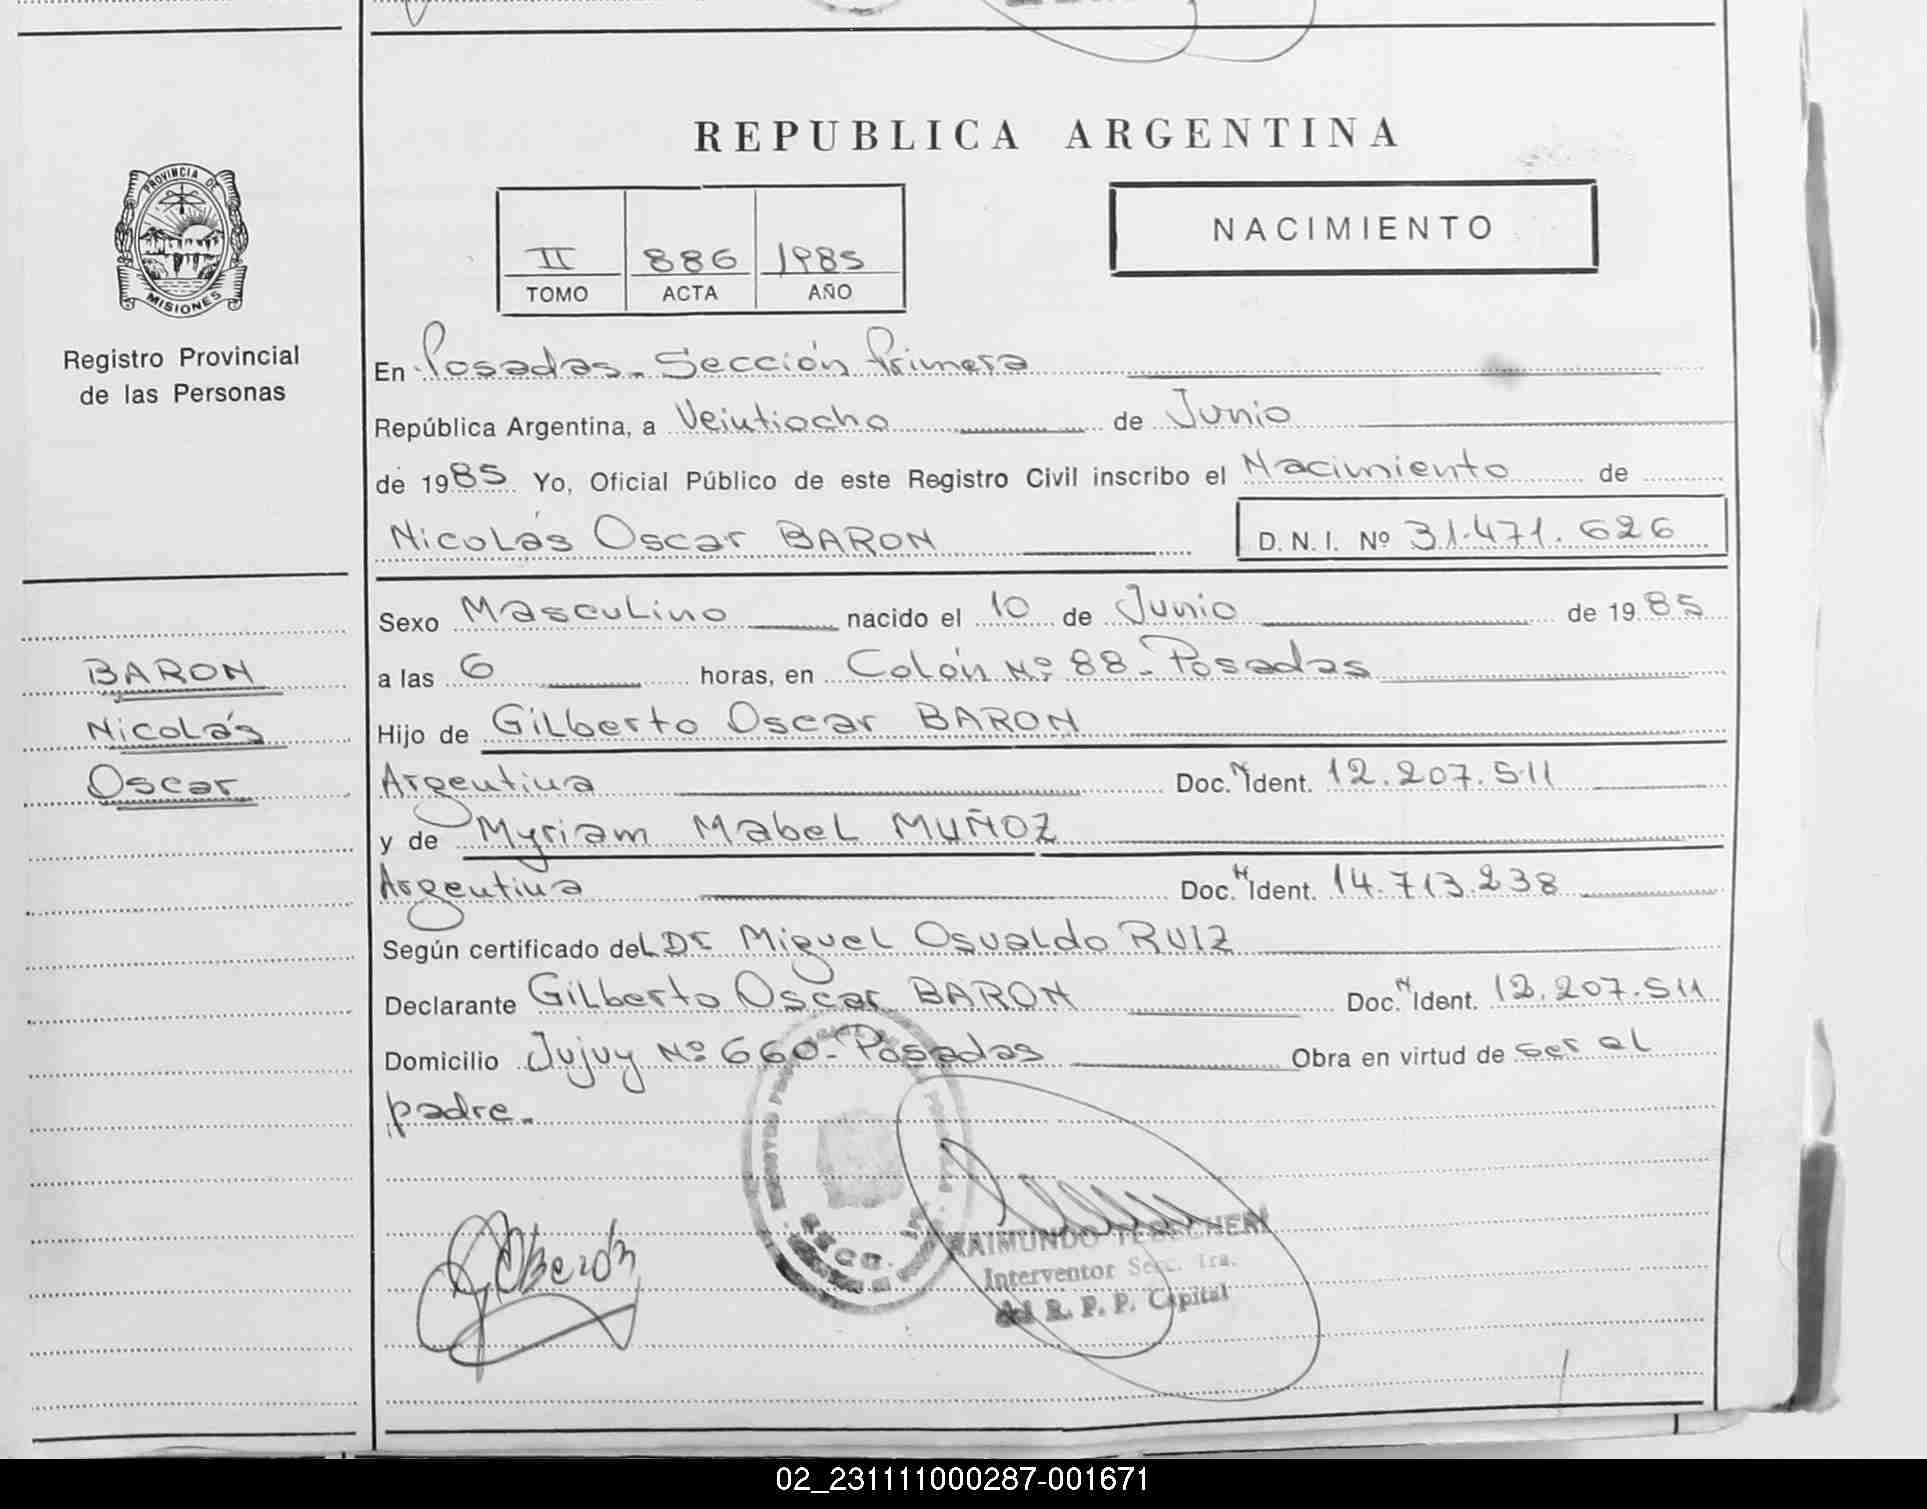 REPUBLICA ARGENTINA
PROVINCIA DE
MISIONES
Registro Provincial
de las Personas
NACIMIENTO
II 886 1985
TOMO ACTA AÑO
En Posadas - Sección Primera
República Argentina, a Veintiocho de Junio
de 1985 Yo, Oficial Público de este Registro Civil inscribo el Nacimiento de
Nicolás Oscar BARON D. N. I. Nº 31.471.626
Sexo Masculino nacido el 10 de Junio de 1985
BARON
Nicolás
Oscar
a las 6 horas, en Colón Nº 88 - Posadas
Hijo de Gilberto Oscar BARON
Argentina Doc. N Ident. 12.207.511
y de Myriam Mabel MUÑOZ
Argentina Doc. N Ident. 14.713.238
Según certificado del Dr Miguel Osvaldo RUIZ
Declarante Gilberto Oscar BARON Doc. N Ident. 12.207.511
Domicilio Jujuy Nº 660 - Posadas Obra en virtud de ser el
padre.
RAIMUNDO
Interventor Secc. 1ra.
del R. P. P. Capital
02_231111000287-001671